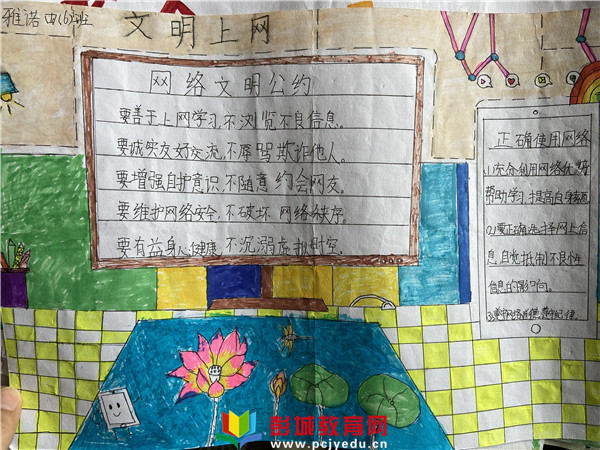 雅诺 四(6)班
文明上网
网络文明公约
要善于上网学习,不浏览不良信息。
要诚实友好交流,不辱骂欺诈他人。
要增强自护意识,不随意约会网友。
要维护网络安全,不破坏网络秩序。
要有益身心健康,不沉溺虚拟时空。
正确使用网络
1.充分利用网络优势
帮助学习,提高自身
(2)要正确选择网上信
息,自觉抵制不良
信息的影响。
彭城教育网
www.pcjyedu.cn